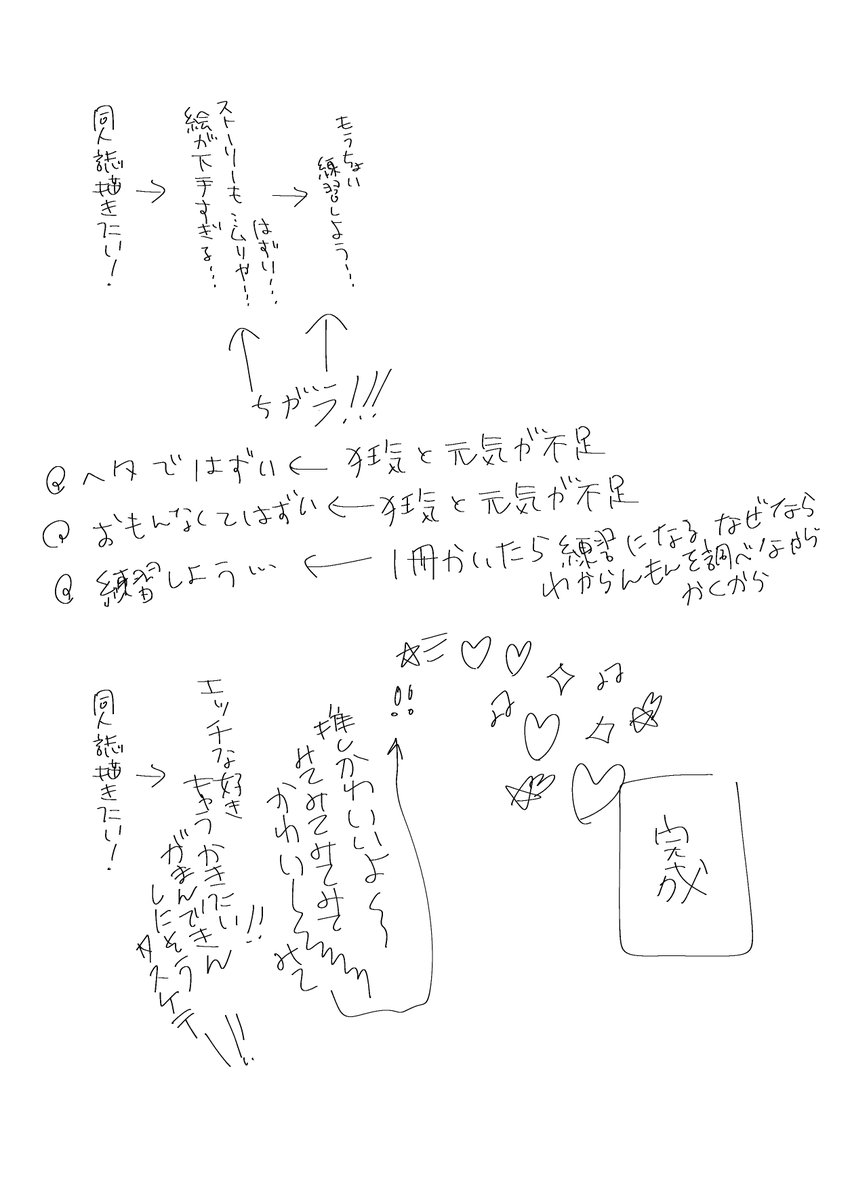 同人誌描きたい!
→
絵が下手すぎる…
ストーリーも…ムリや…
はずい…
→
もうちょい
練習しよう…
ちがう!!!
ヘタではずい ← 狂気と元気が不足
おもんなくてはずい ← 狂気と元気が不足
練習しよう… ← 1冊かいたら練習になる なぜなら
わからんもんを調べながら
かくから
同人誌描きたい!
→
エッチな好き
ちゃうかきたい!!
がまんできん
しにそう
タスケテ!!!
推しかわいいよ〜
みてみてみてみて
かわい〜
みて
!!
完成